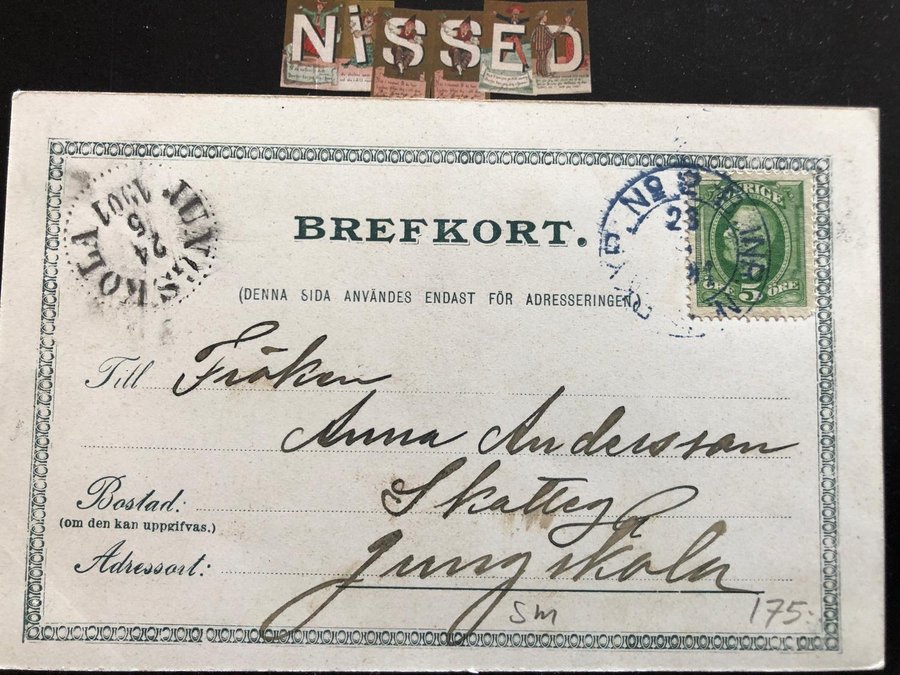 NISSED
BREFKORT.
(DENNA SIDA ANVÄNDES ENDAST FÖR ADRESSERINGEN.)
JUNGSKOLA
24
25
1901
No 2
23
SVERIGE
5
ÖRE
Till Fröken
Anna Andersson
Skatteg
Bostad:
(om den kan uppgifvas.)
Adressort: Jungskola
SM
175:-